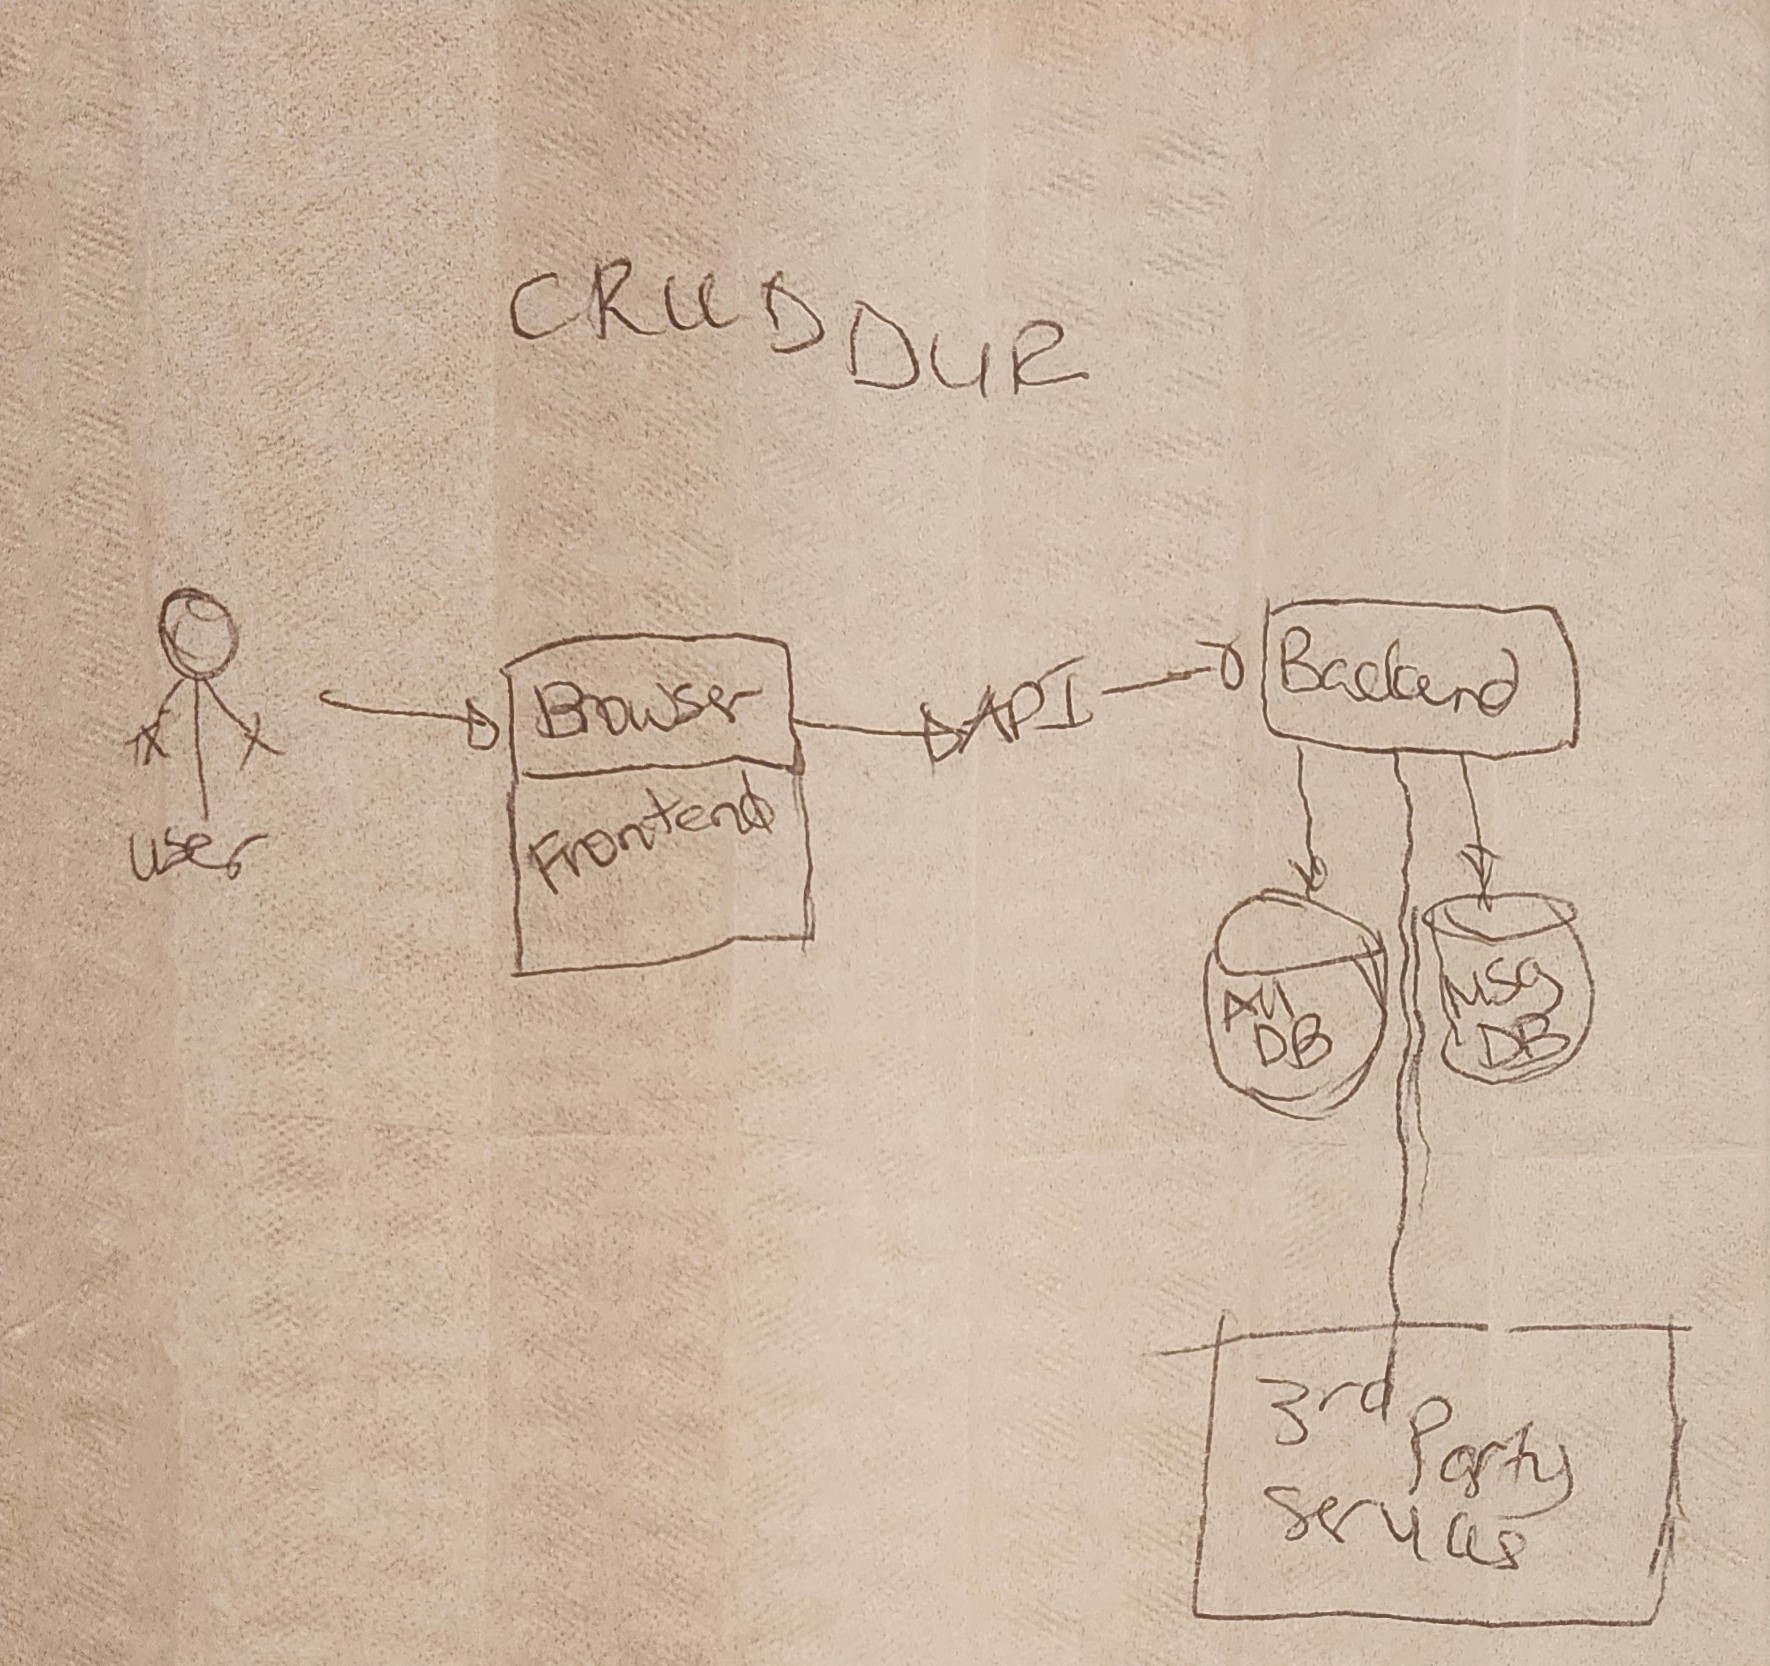 CRUDDUR
user
Browser
Frontend
API
Backend
All
DB
MSG
DB
3rd Party
Services